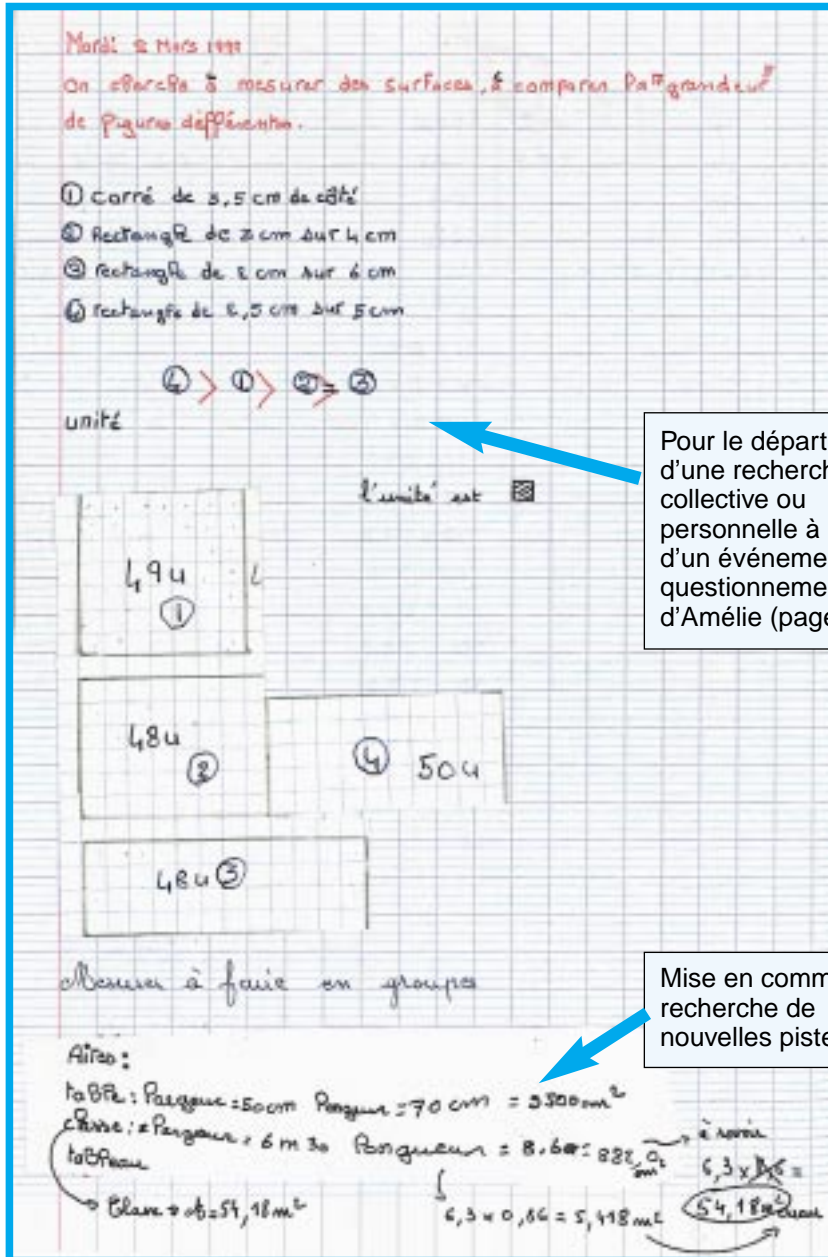 Mardi 2 Mars 1999
On cherche à mesurer des surfaces, à comparer la "grandeur"
de figures différentes.
① carré de 3,5 cm de côté
② Rectangle de 3 cm sur 4 cm
③ rectangle de 2 cm sur 6 cm
④ rectangle de 2,5 cm sur 5 cm
④ > ① > ② = ③
unité
l'unité est
49u
①
48u
②
④ 50u
48u ③
Pour le départ
d'une recherch
collective ou
personnelle à
d'un événeme
questionneme
d'Amélie (page
Mesures à faire en groupes
Mise en comm
recherche de
nouvelles piste
Aires:
table: largeur = 50cm longueur = 70 cm = 3500cm²
classe: largeur = 6 m 30 longueur = 8,60 =
à revoir
tableau
6,3 x 8,6 =
Classe → A = 54,18m²
6,3 x 0,86 = 5,418 m²
54,18m²